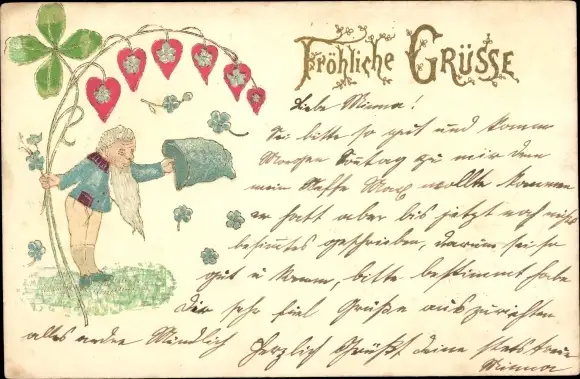 Fröhliche Grüsse
Liebe Minna!
Sei bitte so gut und komm
Morgen Sontag zu mir den
mein Neffe Max wollte kommen
er hatt aber bis jetzt noch nichts
bestimtes geschrieben, darum sei so
gut u komm, bitte bestimmt habe
Dir sehr fiel Grüße auszurichten
alles andre Mündlich Herzlich Grüßt deine stets treue
Minna